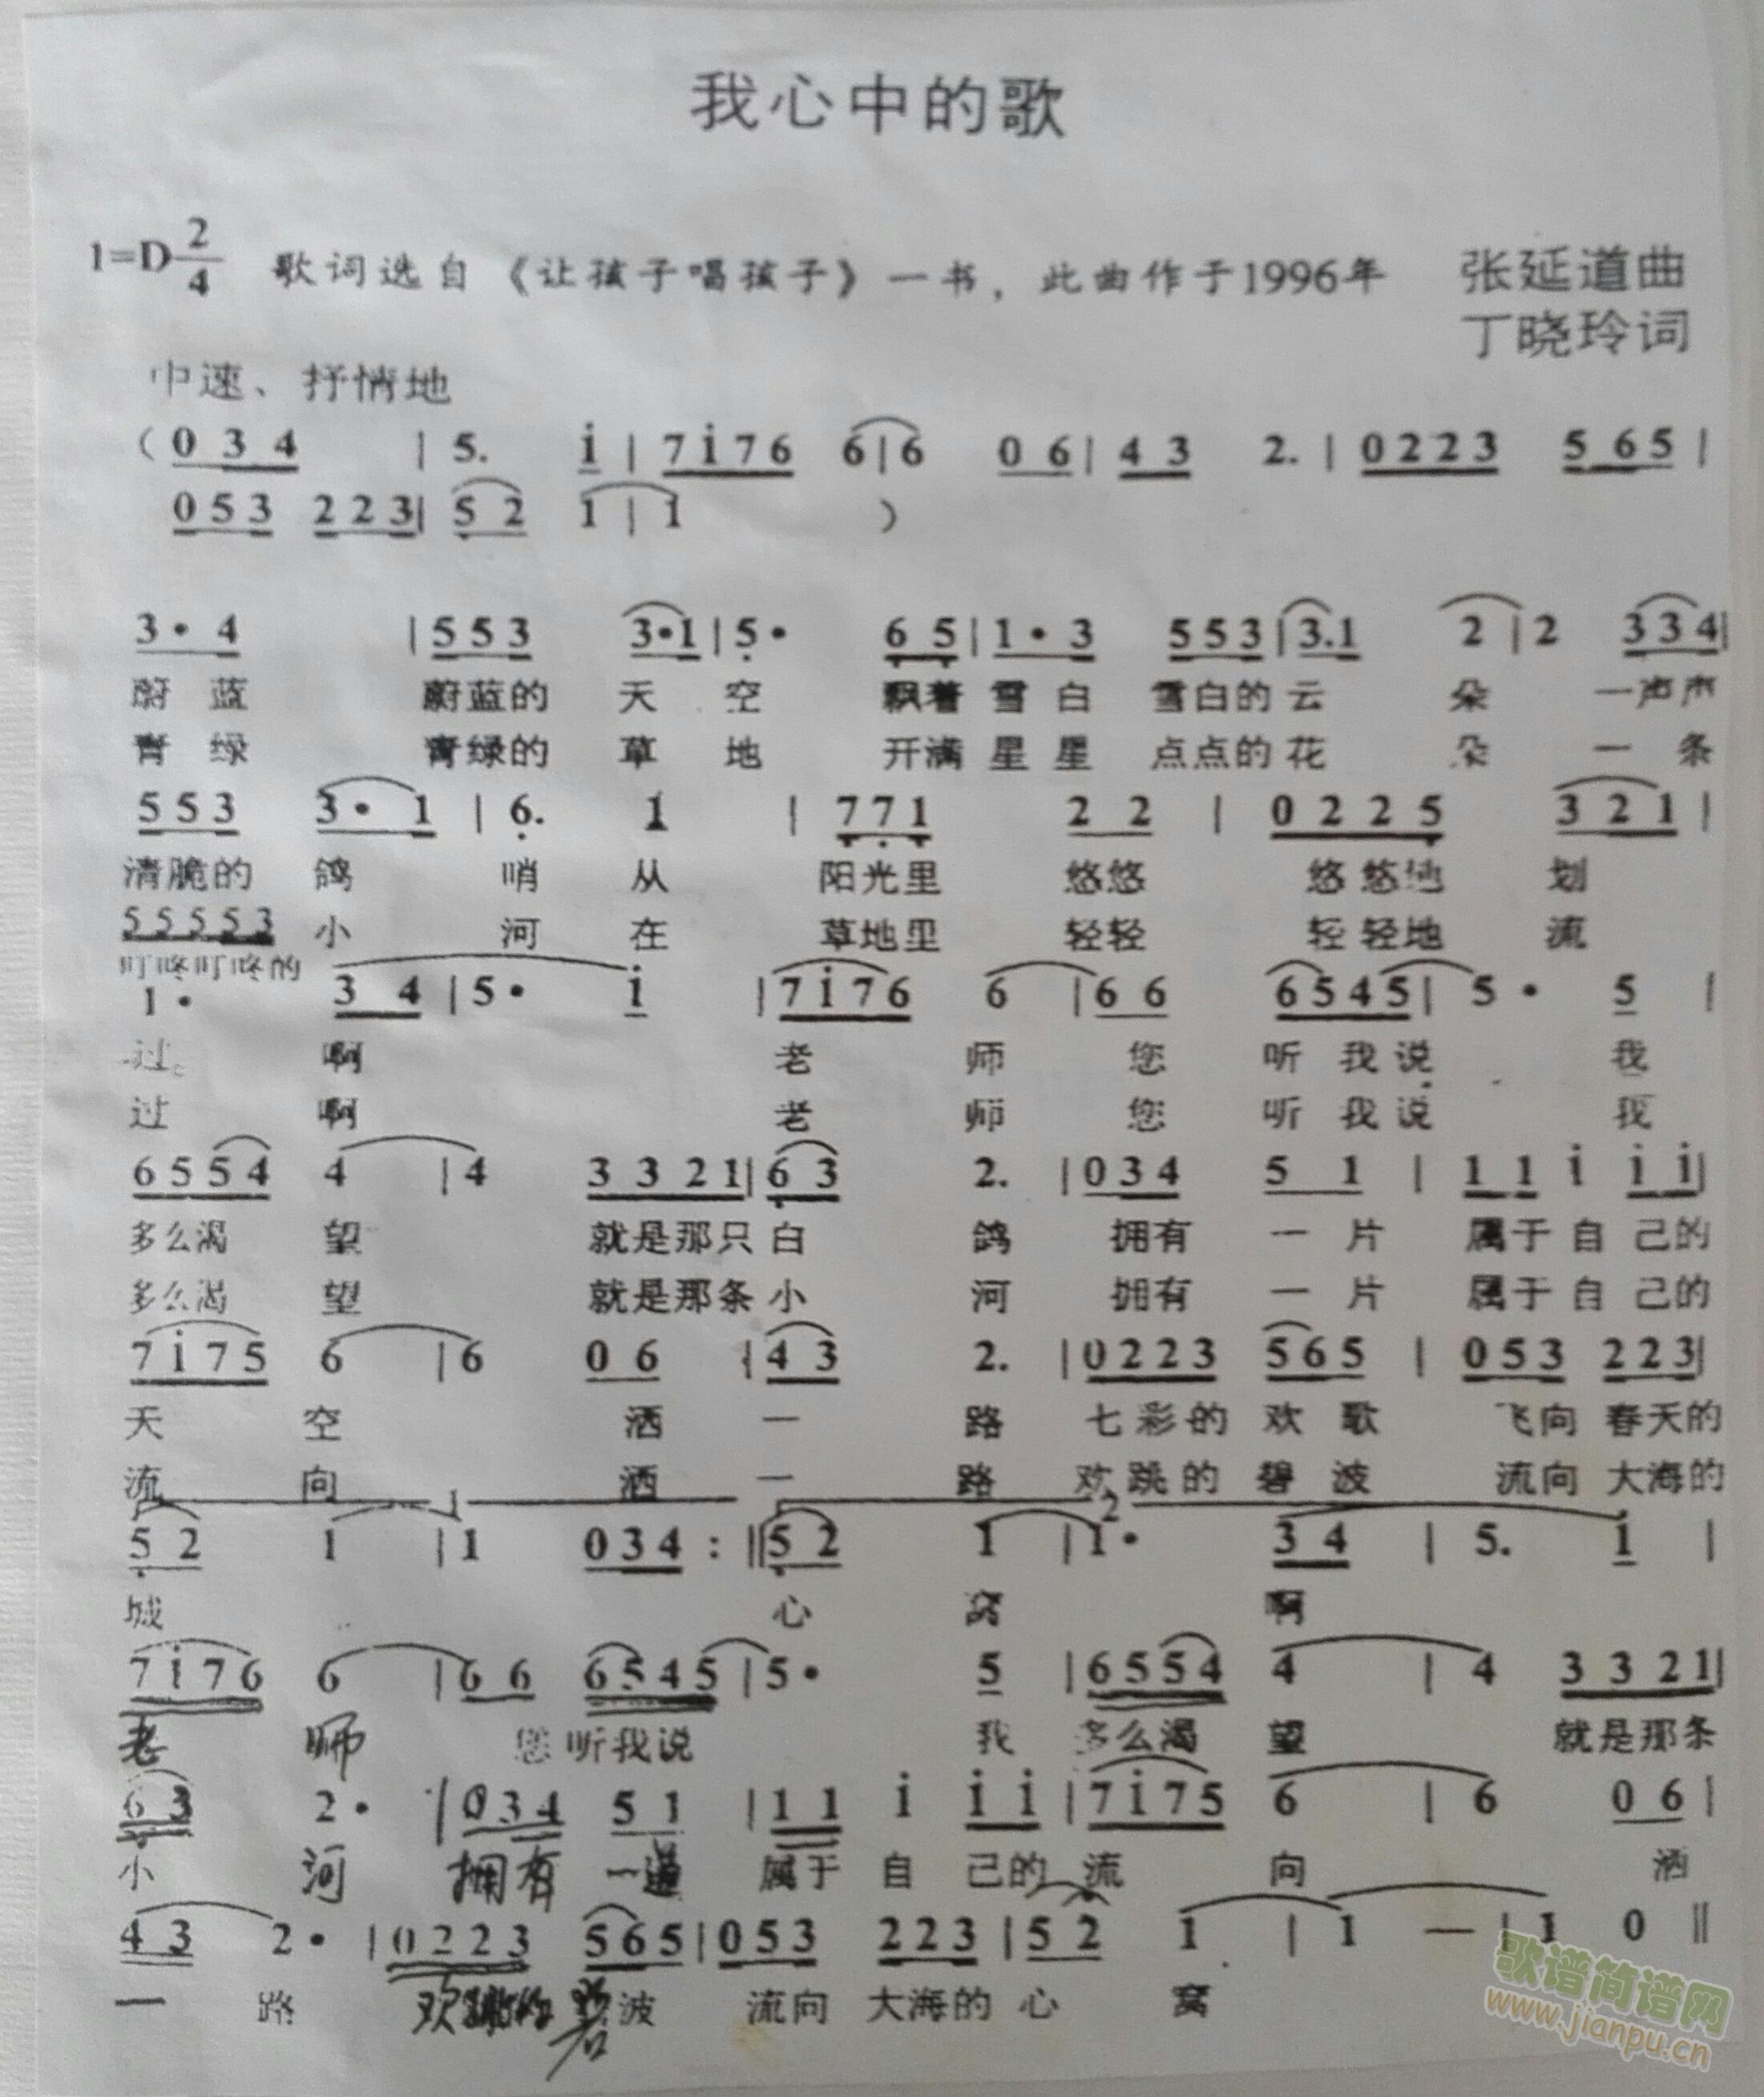 我心中的歌
1=D 2/4 歌词选自《让孩子唱孩子》一书，此曲作于1996年 张延道曲
丁晓玲词
中速、抒情地
（0 3 4 | 5. i | 7 i 7 6 6 | 6 0 6 | 4 3 2. | 0 2 2 3 5 6 5 |
0 5 3 2 2 3 | 5 2 1 | 1 ）
3· 4 | 5 5 3 3·1 | 5· 6 5 | 1· 3 5 5 3 | 3.1 2 | 2 3 3 4 |
蔚 蓝 蔚蓝的 天 空 飘着 雪 白 雪白的 云 朵 一声声
青 绿 青绿的 草 地 开满 星 星 点点的 花 朵 一 条
5 5 3 3· 1 | 6. 1 | 7 7 1 2 2 | 0 2 2 5 3 2 1 |
清脆的 鸽 哨 从 阳光里 悠悠 悠 悠地 划
5 5 5 5 3 小 河 在 草地里 轻轻 轻 轻地 流
叮咚叮咚的
1· 3 4 | 5· i | 7 i 7 6 6 | 6 6 6 5 4 5 | 5· 5 |
过。 啊 老 师 您 听 我 说 我
过 啊 老 师 您 听 我 说 我
6 5 5 4 4 | 4 3 3 2 1 | 6 3 2. | 0 3 4 5 1 | 1 1 i i i |
多么渴 望 就是那只 白 鸽 拥有 一 片 属于 自 己的
多么渴 望 就是那条 小 河 拥有 一 片 属于 自 己的
7 i 7 5 6 | 6 0 6 | 4 3 2. | 0 2 2 3 5 6 5 | 0 5 3 2 2 3 |
天 空 洒 一 路 七彩的 欢 歌 飞向 春天的
流 向 洒 一 路 欢跳的 碧 波 流向 大海的
1 2
5 2 1 | 1 0 3 4 :‖ 5 2 1 | 1· 3 4 | 5. i |
城 心 窝 啊
7 i 7 6 6 | 6 6 6 5 4 5 | 5· 5 | 6 5 5 4 4 | 4 3 3 2 1 |
老 师 您 听我说 我 多么渴 望 就是那条
6 3 2· | 0 3 4 5 1 | 1 1 i i i | 7 i 7 5 6 | 6 0 6 |
小 河 拥有 一道 属于 自 己的 流 向 洒
4 3 2· | 0 2 2 3 5 6 5 | 0 5 3 2 2 3 | 5 2 1 | 1 — | 1 0 ‖
一 路 欢跳的 波 流向 大海的 心 窝
歌谱简谱网
www.jianpu.cn